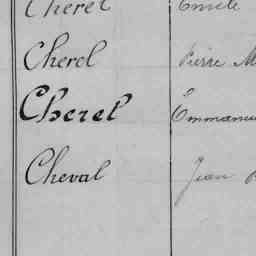 Cherel Emile
Cherel Pierre M
Cherel Emmanu
Cheval Jean